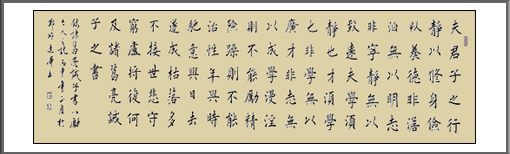 夫君子之行
靜以修身儉
以養德非澹
泊無以明志
非寧靜無以
致遠夫學須
靜也才須學
也非學無以
廣才非志無
以成學漫淫
則不能勵精
險躁則不能
治性年與時
馳意與日去
遂成枯落多
不接世悲守
窮廬將復何
及諸葛亮誡
子之書